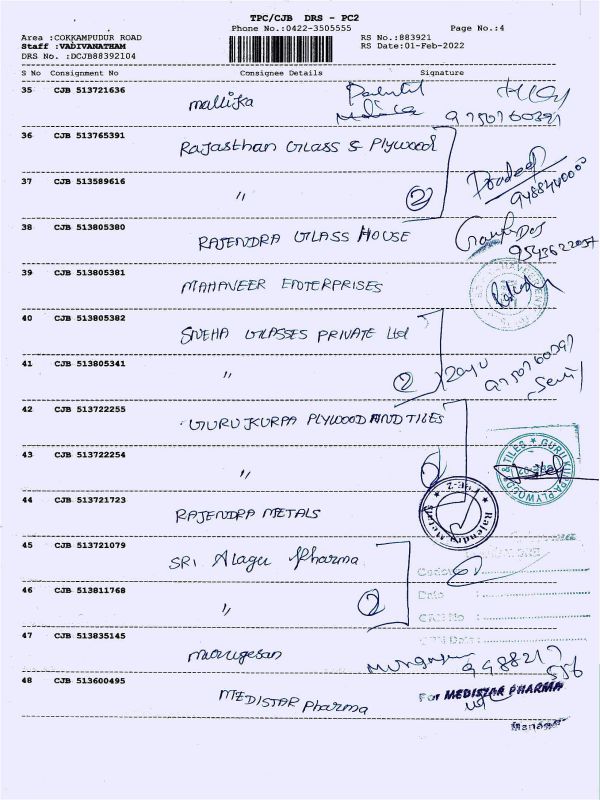 TPC/CJB DRS - PC2
Phone No.:0422-3505555 Page No.:4
Area :COKKAMPUDUR ROAD RS No.:883921
Staff :VADIVANATHAM RS Date:01-Feb-2022
DRS No. :DCJB88392104
S No Consignment No Consignee Details Signature
35 CJB 513721636
mallika 9750760397
36 CJB 513765391
Rajasthan Glass & Plywood
37 CJB 513589616 Pradeep
" 2 9488440000
38 CJB 513805380
RAJENDRA GLASS HOUSE
39 CJB 513805381
MAHAVEER ENTERPRISES
40 CJB 513805382
SNEHA GLASSES PRIVATE Ltd
41 CJB 513805341 9750760397
" 2
42 CJB 513722255
GURUKURPA PLYWOOD AND TILES
43 CJB 513722254
" 2
44 CJB 513721723
RAJENDRA METALS
Rajendra Metals
45 CJB 513721079
SRI Alagu Pharma
46 CJB 513811768 Date :
" 2
47 CJB 513835145
murugesan
48 CJB 513600495
MEDISTAR Pharma For MEDISTAR PHARMA
Manager